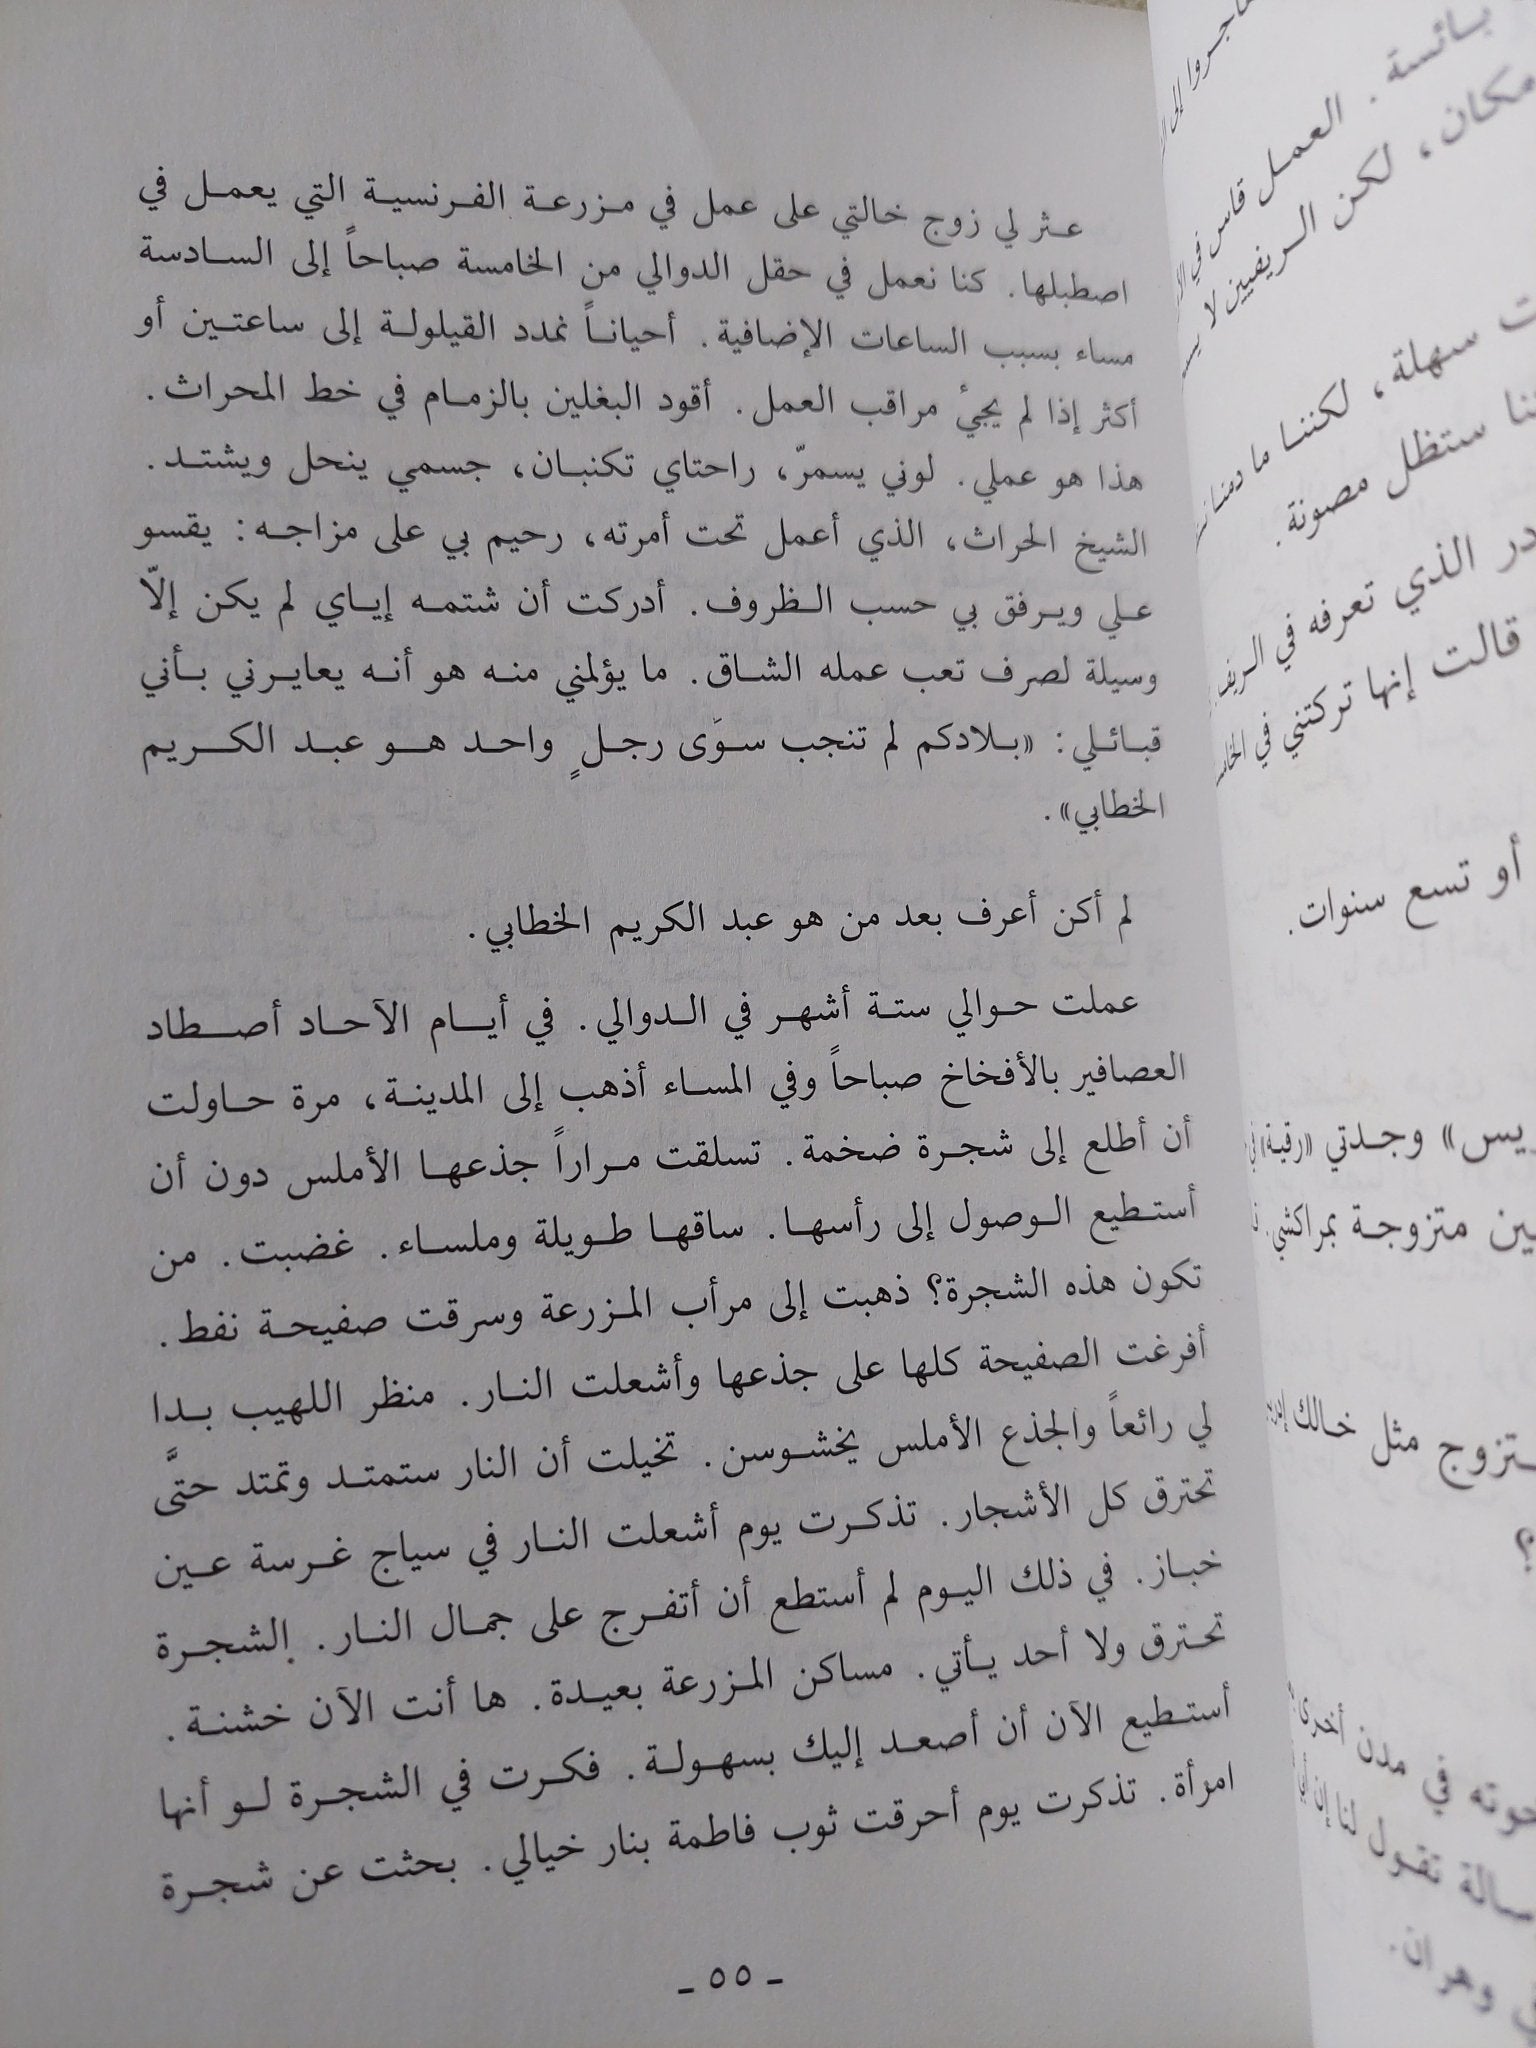 عثر لي زوج خالتي على عمل في مزرعة الفرنسية التي يعمل في
اصطبلها. كنا نعمل في حقل الدوالي من الخامسة صباحاً إلى السادسة
مساء بسبب الساعات الإضافية. أحياناً نمدد القيلولة إلى ساعتين أو
أكثر إذا لم يجيءُ مراقب العمل. أقود البغلين بالزمام في خط المحراث.
هذا هو عملي. لوني يسمرّ، راحتاي تكنبان، جسمي ينحل ويشتد.
الشيخ الحراث، الذي أعمل تحت أمرته، رحيم بي على مزاجه: يقسو
علي ويرفق بي حسب الظروف. أدركت أن شتمه إياي لم يكن إلّا
وسيلة لصرف تعب عمله الشاق. ما يؤلمني منه هو أنه يعايرني بأني
قبائلي: «بلادكم لم تنجب سوَى رجلٍ واحد هو عبد الكريم
الخطابي».
لم أكن أعرف بعد من هو عبد الكريم الخطابي.
عملت حوالي ستة أشهر في الدوالي. في أيام الآحاد أصطاد
العصافير بالأفخاخ صباحاً وفي المساء أذهب إلى المدينة، مرة حاولت
أن أطلع إلى شجرة ضخمة. تسلقت مراراً جذعها الأملس دون أن
أستطيع الوصول إلى رأسها. ساقها طويلة وملساء. غضبت. من
تكون هذه الشجرة؟ ذهبت إلى مرأب المزرعة وسرقت صفيحة نفط.
أفرغت الصفيحة كلها على جذعها وأشعلت النار. منظر اللهيب بدا
لي رائعاً والجذع الأملس يخشوسن. تخيلت أن النار ستمتد وتمتد حتَّى
تحترق كل الأشجار. تذكرت يوم أشعلت النار في سياج غرسة عين
خباز. في ذلك اليوم لم أستطع أن أتفرج على جمال النار. الشجرة
تحترق ولا أحد يأتي. مساكن المزرعة بعيدة. ها أنت الآن خشنة.
أستطيع الآن أن أصعد إليك بسهولة. فكرت في الشجرة لو أنها
امرأة. تذكرت يوم أحرقت ثوب فاطمة بنار خيالي. بحثت عن شجرة
ـ ٥٥ ـ
بائسة. العمل قاس في
مكان، لكن الريفيين لا
سهلة، لكننا ما دمنا
ستظل مصونة.
الذي تعرفه في الريف
قالت إنها تركتني في
أو تسع سنوات.
وجدتي «رقية»
متزوجة بمراكشي.
مثل خالك
؟
في مدن أخرى
تقول لنا إن
وهران.